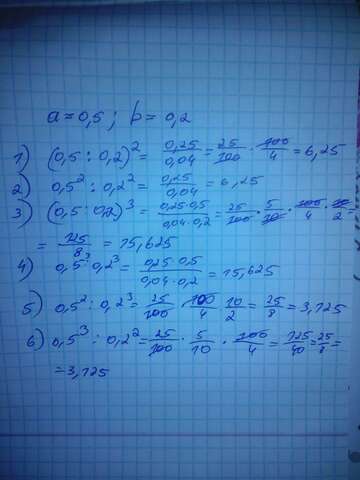 a = 0,5 ; b = 0,2
1) (0,5 : 0,2)² = 0,25/0,04 = 25/100 · 100/4 = 6,25
2) 0,5² : 0,2² = 0,25/0,04 = 6,25
3) (0,5 : 0,2)³ = 0,25·0,5/0,04·0,2 = 25/100 · 5/10 · 100/4 · 10/2 =
= 125/8 = 15,625
4) 0,5³ : 0,2³ = 0,25·0,5/0,04·0,2 = 15,625
5) 0,5² : 0,2³ = 25/100 · 100/4 · 10/2 = 25/8 = 3,125
6) 0,5³ : 0,2² = 25/100 · 5/10 · 100/4 = 125/40 = 25/8 =
= 3,125